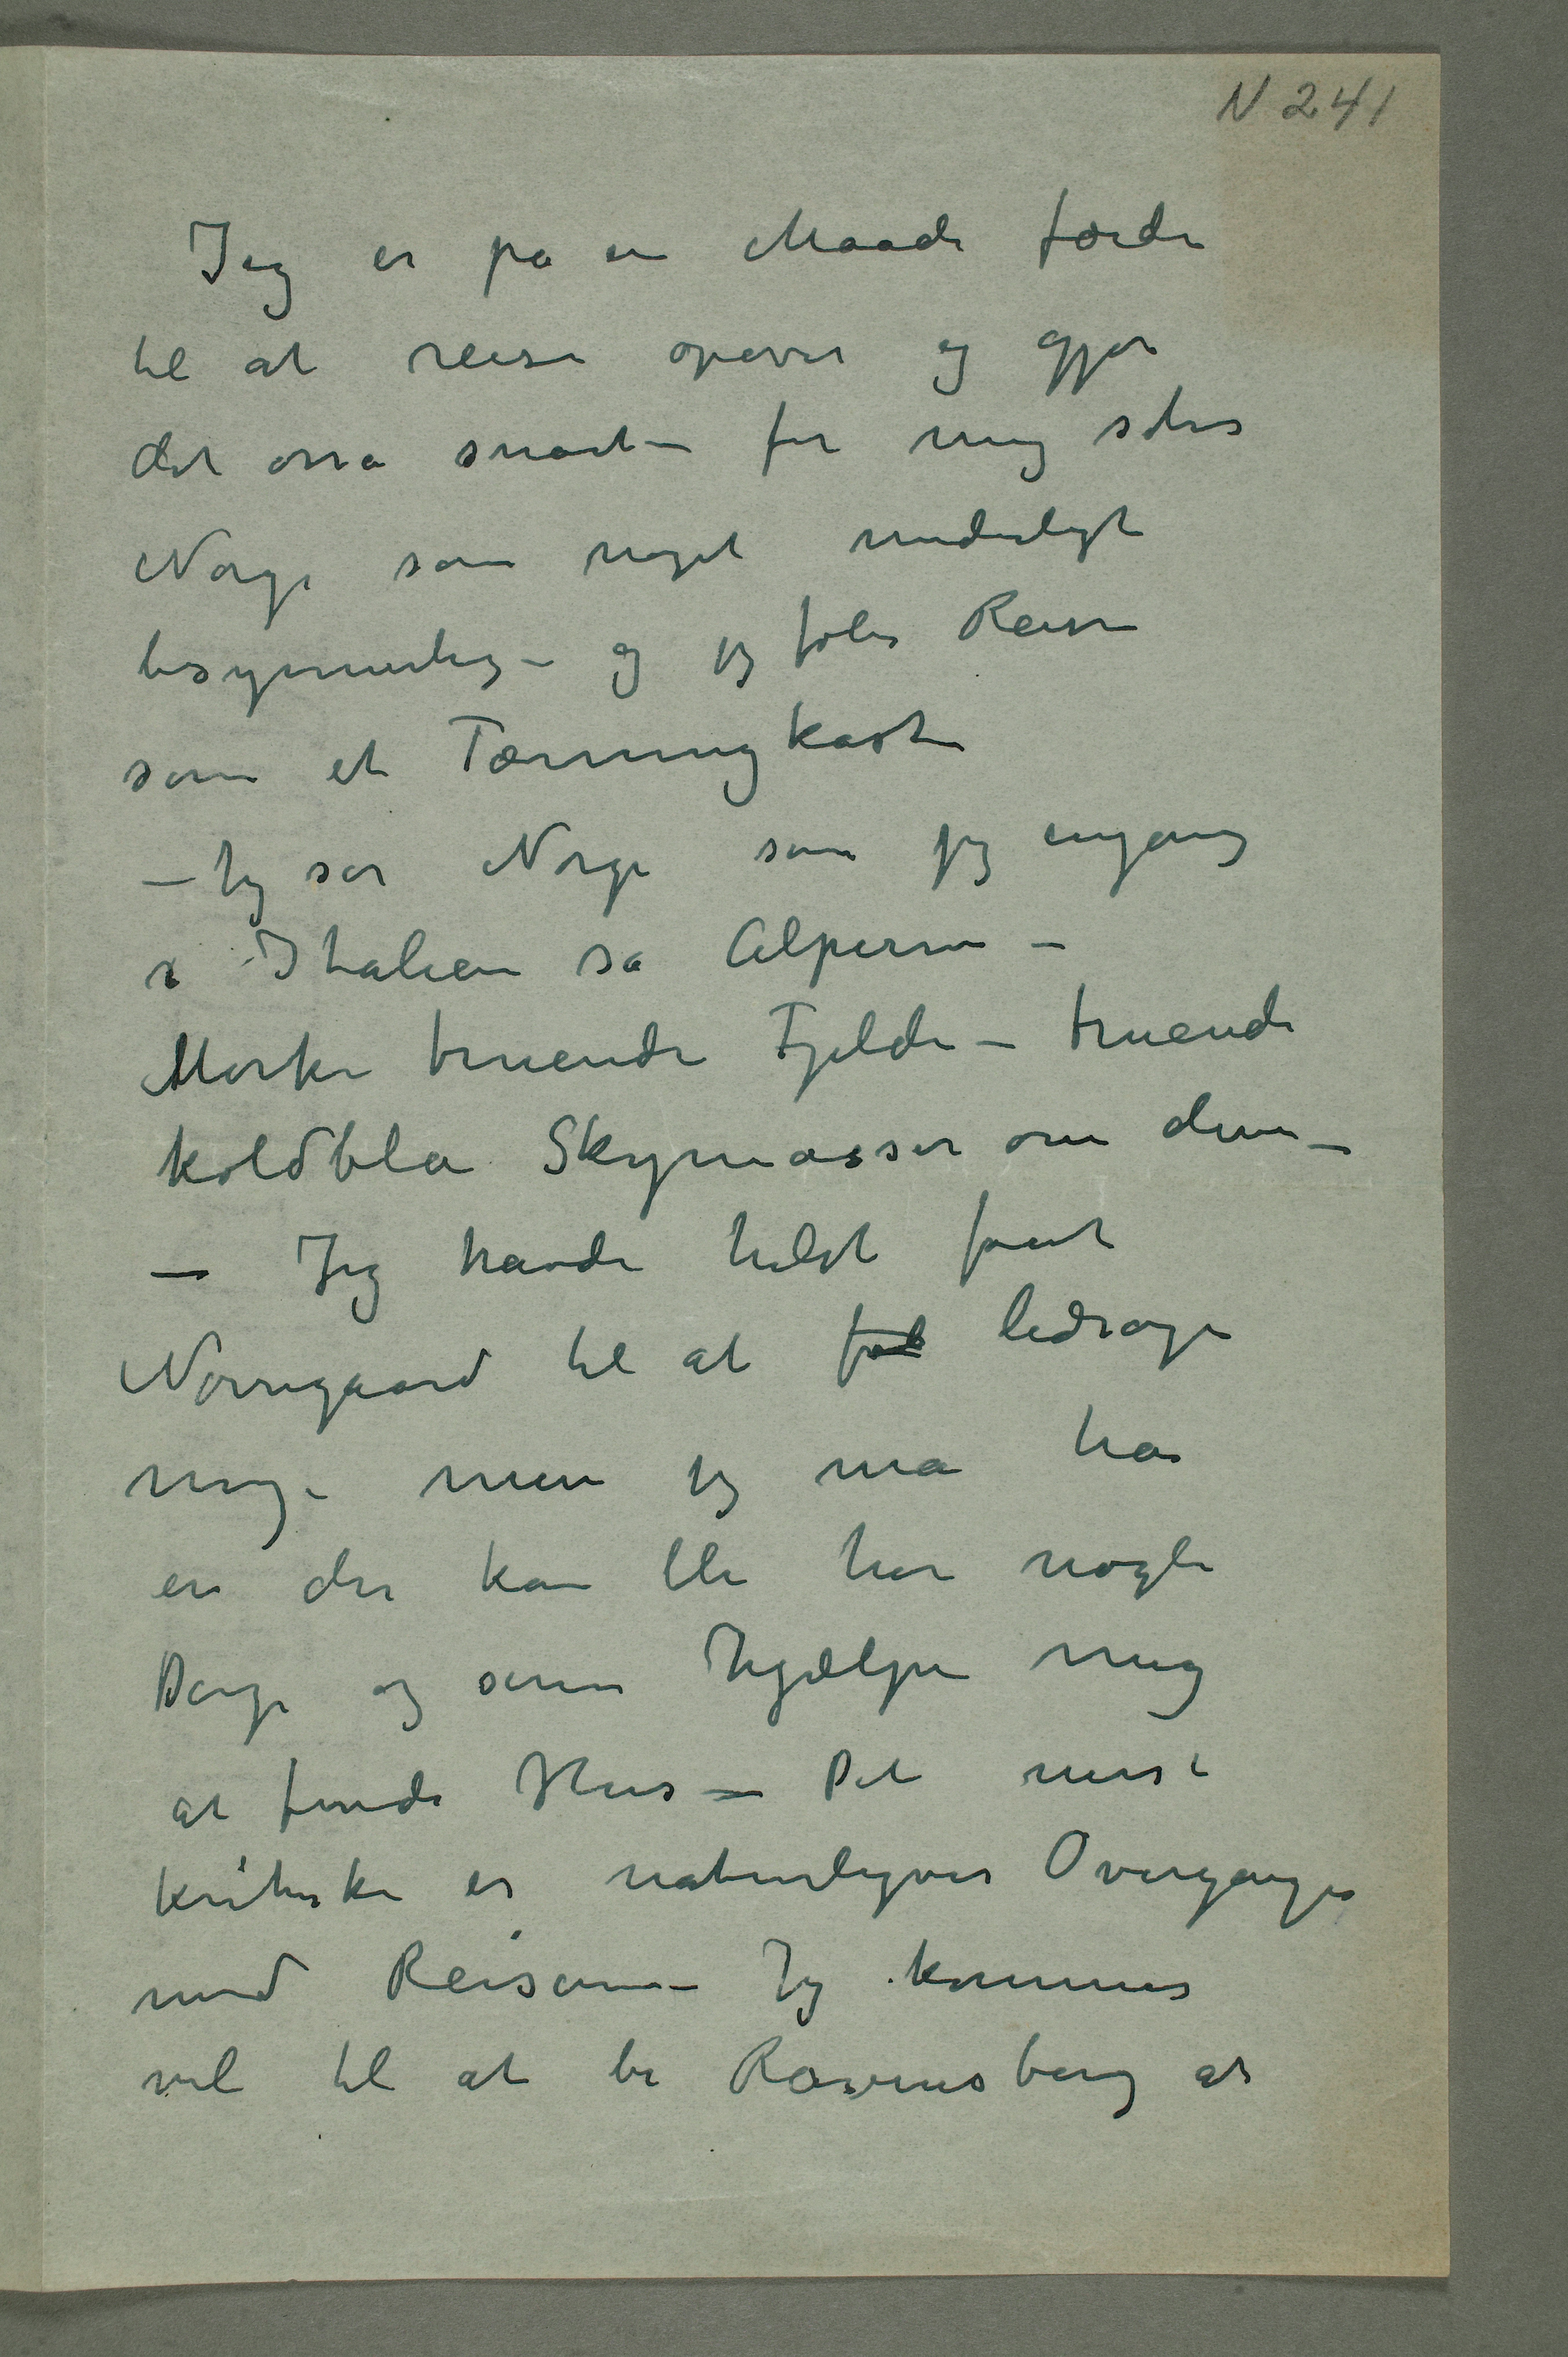 N 241
Jeg er på en Maade færdi
til at reise opover og gjør
det osså snart – for mig står
Norge som noget underligt
besynnerlig – og jeg føler Reisen
som et Tærningkast
– Jeg ser Norge som jeg engang
i Italien så Alperne –
Mørke truende Fjelde – truende
koldblå Skymasser om dem –
– Jeg havde helst fået
Nørregaard til at føl ledsage
mig – men jeg må ha
en der kan bli her nogle
Dage og siden hjælpe mig
at finde Hus – Det mest
kritiske er naturligvis Overgange
med Reisen – Jeg kommer
vel til at be Ravensberg at